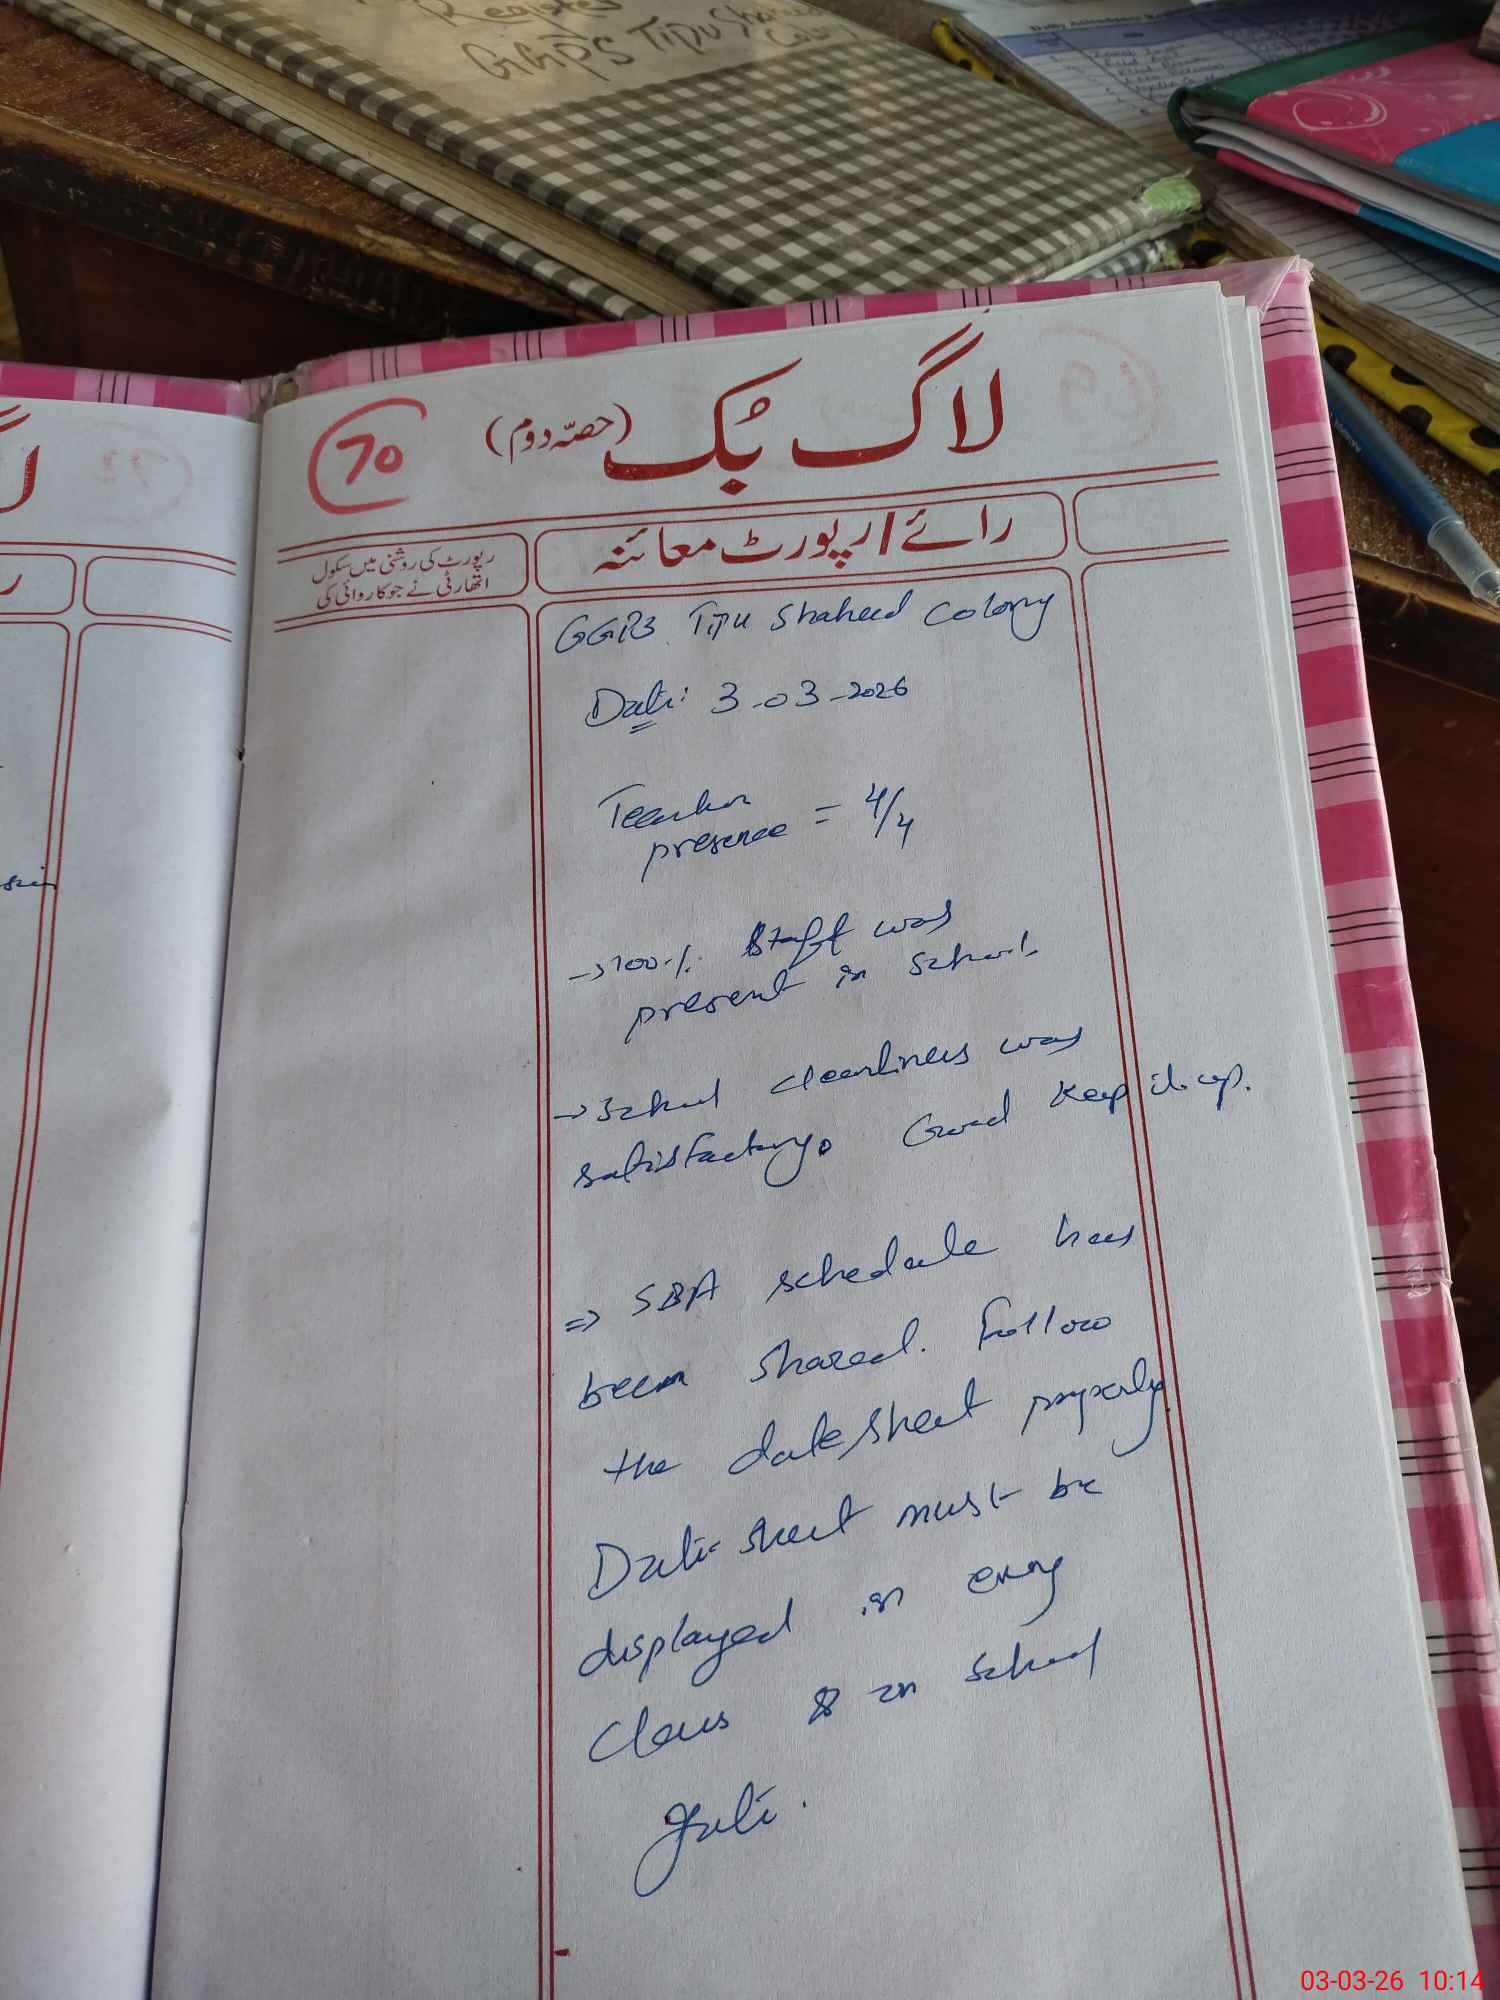 Register
GGPS Tipu Shaheed
لاگ بُک (حصّہ دوم)
70
رائے/رپورٹ معائنہ
رپورٹ کی روشنی میں سکول
اتھارٹی نے جو کاروائی کی
GGPS Tipu Shaheed Colony
Date: 3-03-2026
Teacher
presence = 4/4
→ 100% Staff was
present in school.
→ School cleanliness was
satisfactory. Good Keep it up.
⇒ SBA schedule has
been shared. Follow
the datesheet properly.
Date sheet must be
displayed in every
class & in school
gate.
03-03-26 10:14